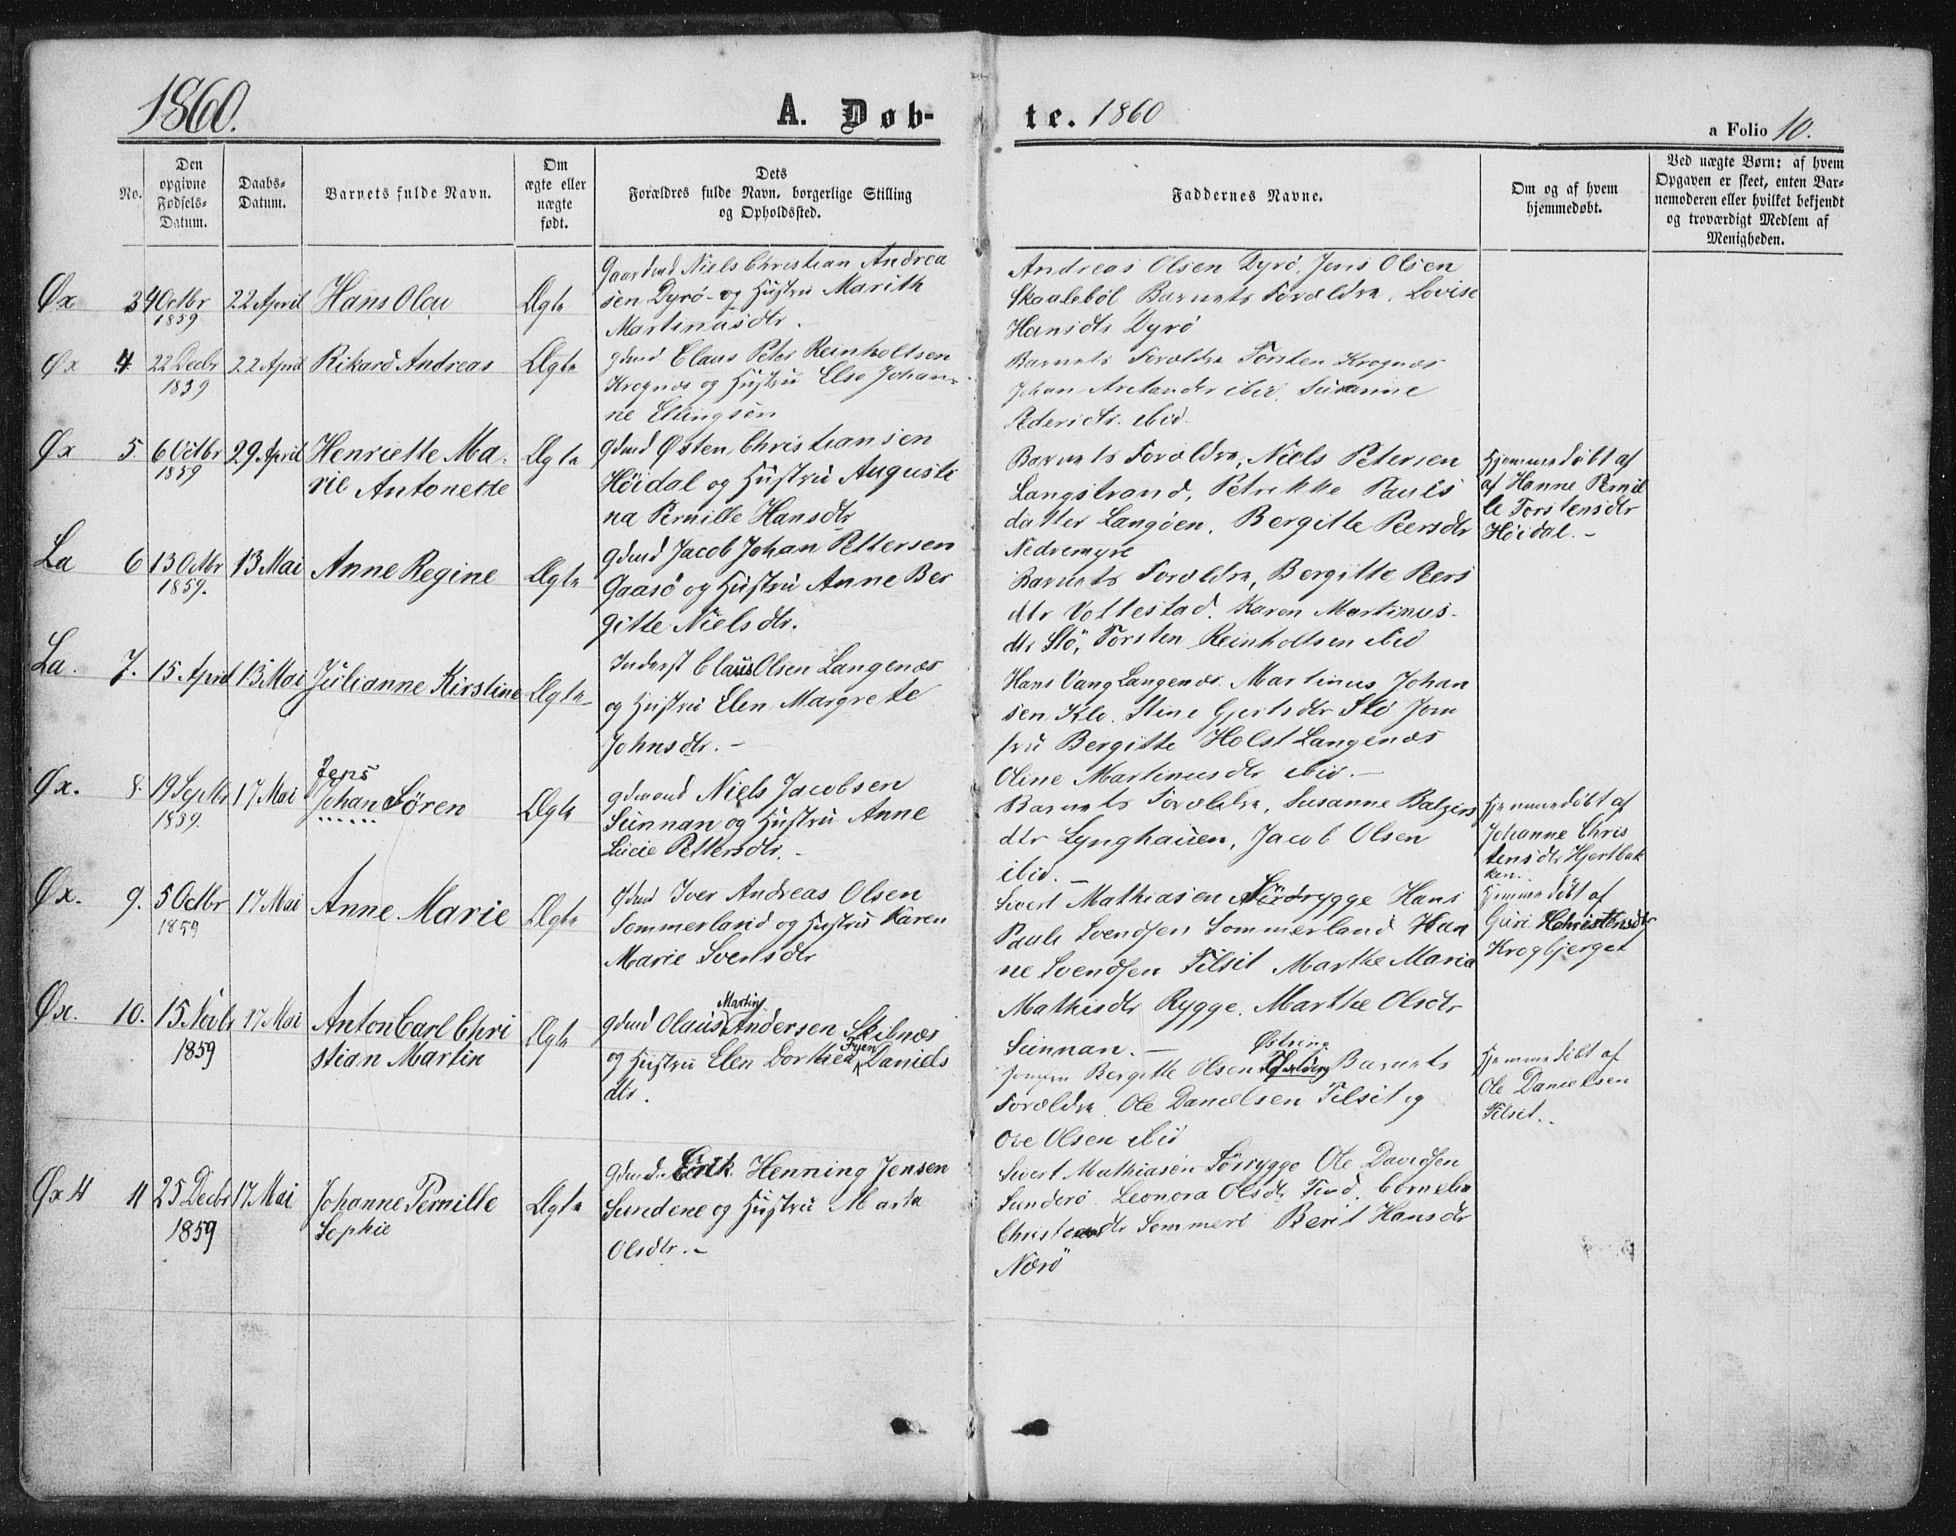 1860.
A. Døb-
te. 1860
a Folio 10.
No.
Den opgivne Fødsels-Datum.
Daabs-Datum.
Barnets fulde Navn.
Om ægte eller uægte født.
Dets Forældres fulde Navn, borgerlige Stilling og Opholdssted.
Faddernes Navne.
Om og af hvem hjemmedøbt.
Ved uægte Børn: af hvem Opgaven er skeet, enten Barnemoderen eller hvilket bekjendt og troværdigt Medlem af Menigheden.
Øx 3 4 Octbr 1859 22 April Hans Olai Ægte
Gaardmd Niels Christian Andrea
sen Dyrö og Hustru Marith
Martinusdtr.
Andreas Olsen Dyrö, Jens Olsen
Skaaleböl Barnets Forældre. Lovise
Hansdtr Dyrö
Øx 4 22 Decbr 1859 22 April Rikard Andreas Ægte
Gdmd Claus Peter Reinholtsen
Krognæs og Hustru Else Johan-
ne Ellingsen
Barnets Forældre Torsten Krognæs
Johan ibid. Susanne
Pedersdtr. ibid.
Øx 5. 6 Octbr 1859 29 April Henriette Ma-
rie Antonette Ægte
Gdmd Østen Christiansen
Höidal og Hustru Augusti
na Pernille Hansdtr
Barnets Forældre, Niels Petersen
Langstrand, Petrikke Pauls
datter Langöen, Bergitte Peersdtr
Nedremyre
Hjemmedöbt af
af Hanne Pernil
le Torstensdtr
Höidal. -
La 6 13 Octbr 1859. 13 Mai Anne Regine Ægte
Gdmd Jacob Johan Pettersen
Gaasö og Hustru Anne Ber
gitte Nielsdtr.
Barnets Forældre, Bergitte Peers
dtr Vottestad. Karen Martinus-
dtr Stö, Torsten Reinholtsen ibid
La. 7. 15 April 13 Mai Julianne Kirstine Ægte
Inderst Claus Olsen Langenæs
og Hustru Elen Margrete
Johnsdtr. -
Hans Vang Langenæs. Martinus Johan
sen Klo. Stine Gjertsdtr Stö Jom
fru Bergitte Holst Langenæs
Oline Martinusdtr ibid. -
Øx. 8. 19 Septbr 1859. 17 Mai Jens
Johan Sören Ægte
Gdmand Niels Jacobsen
Sünnan og Hustru Anne
Lucie Pettersdtr. -
Barnets Forældre, Susanne Balzers
dtr Lynghauen, Jacob Olsen
ibid. -
Hjemmedöbt af
Johanne Chris
tensdtr Hjertbak
ken.
Øx. 9. 5 Octbr 1859 17 Mai Anne Marie Ægte
Gdmd Iver Andreas Olsen
Sommerland og Hustru Karen
Marie Svensdtr
Sivert Mathiasen Sördrygge Hans
Pauls Svendsen Sommerland Han
ne Svendsen Tilsit Marthe Maria
Mathisdtr Rygge. Marthe Olsdtr
Sünnan. -
Hjemmedöbt af
Guri Christensdtr
Krogbjerget
Øx. 10. 15 Novbr 1859 17 Mai Anton Carl Chri
stian Martin Ægte
Gdmd Olaus Martin Andersen Skibnæs
og Hustru Elen Dorthea Fyen Daniels
dtr.
Jomfru Bergitte Olsen Barnets
Forældre, Ole Danielsen Tilsit og
Ove Olsen ibid
Hjemmedöbt af
Ole Danielsen
Tilsit.
Øx 11 25 Decbr 1859 17 Mai Johanne Pernille
Sophie Ægte
Gdmd. Erik Henning Jensen
Sundene og Hustru Marta
Olsdtr. -
Sivert Mathiasen Sörrygge Ole Davidsen
Sunderö. Leonora Olsdtr Cornelia
Sommerö Berit Hansdtr
Nærö